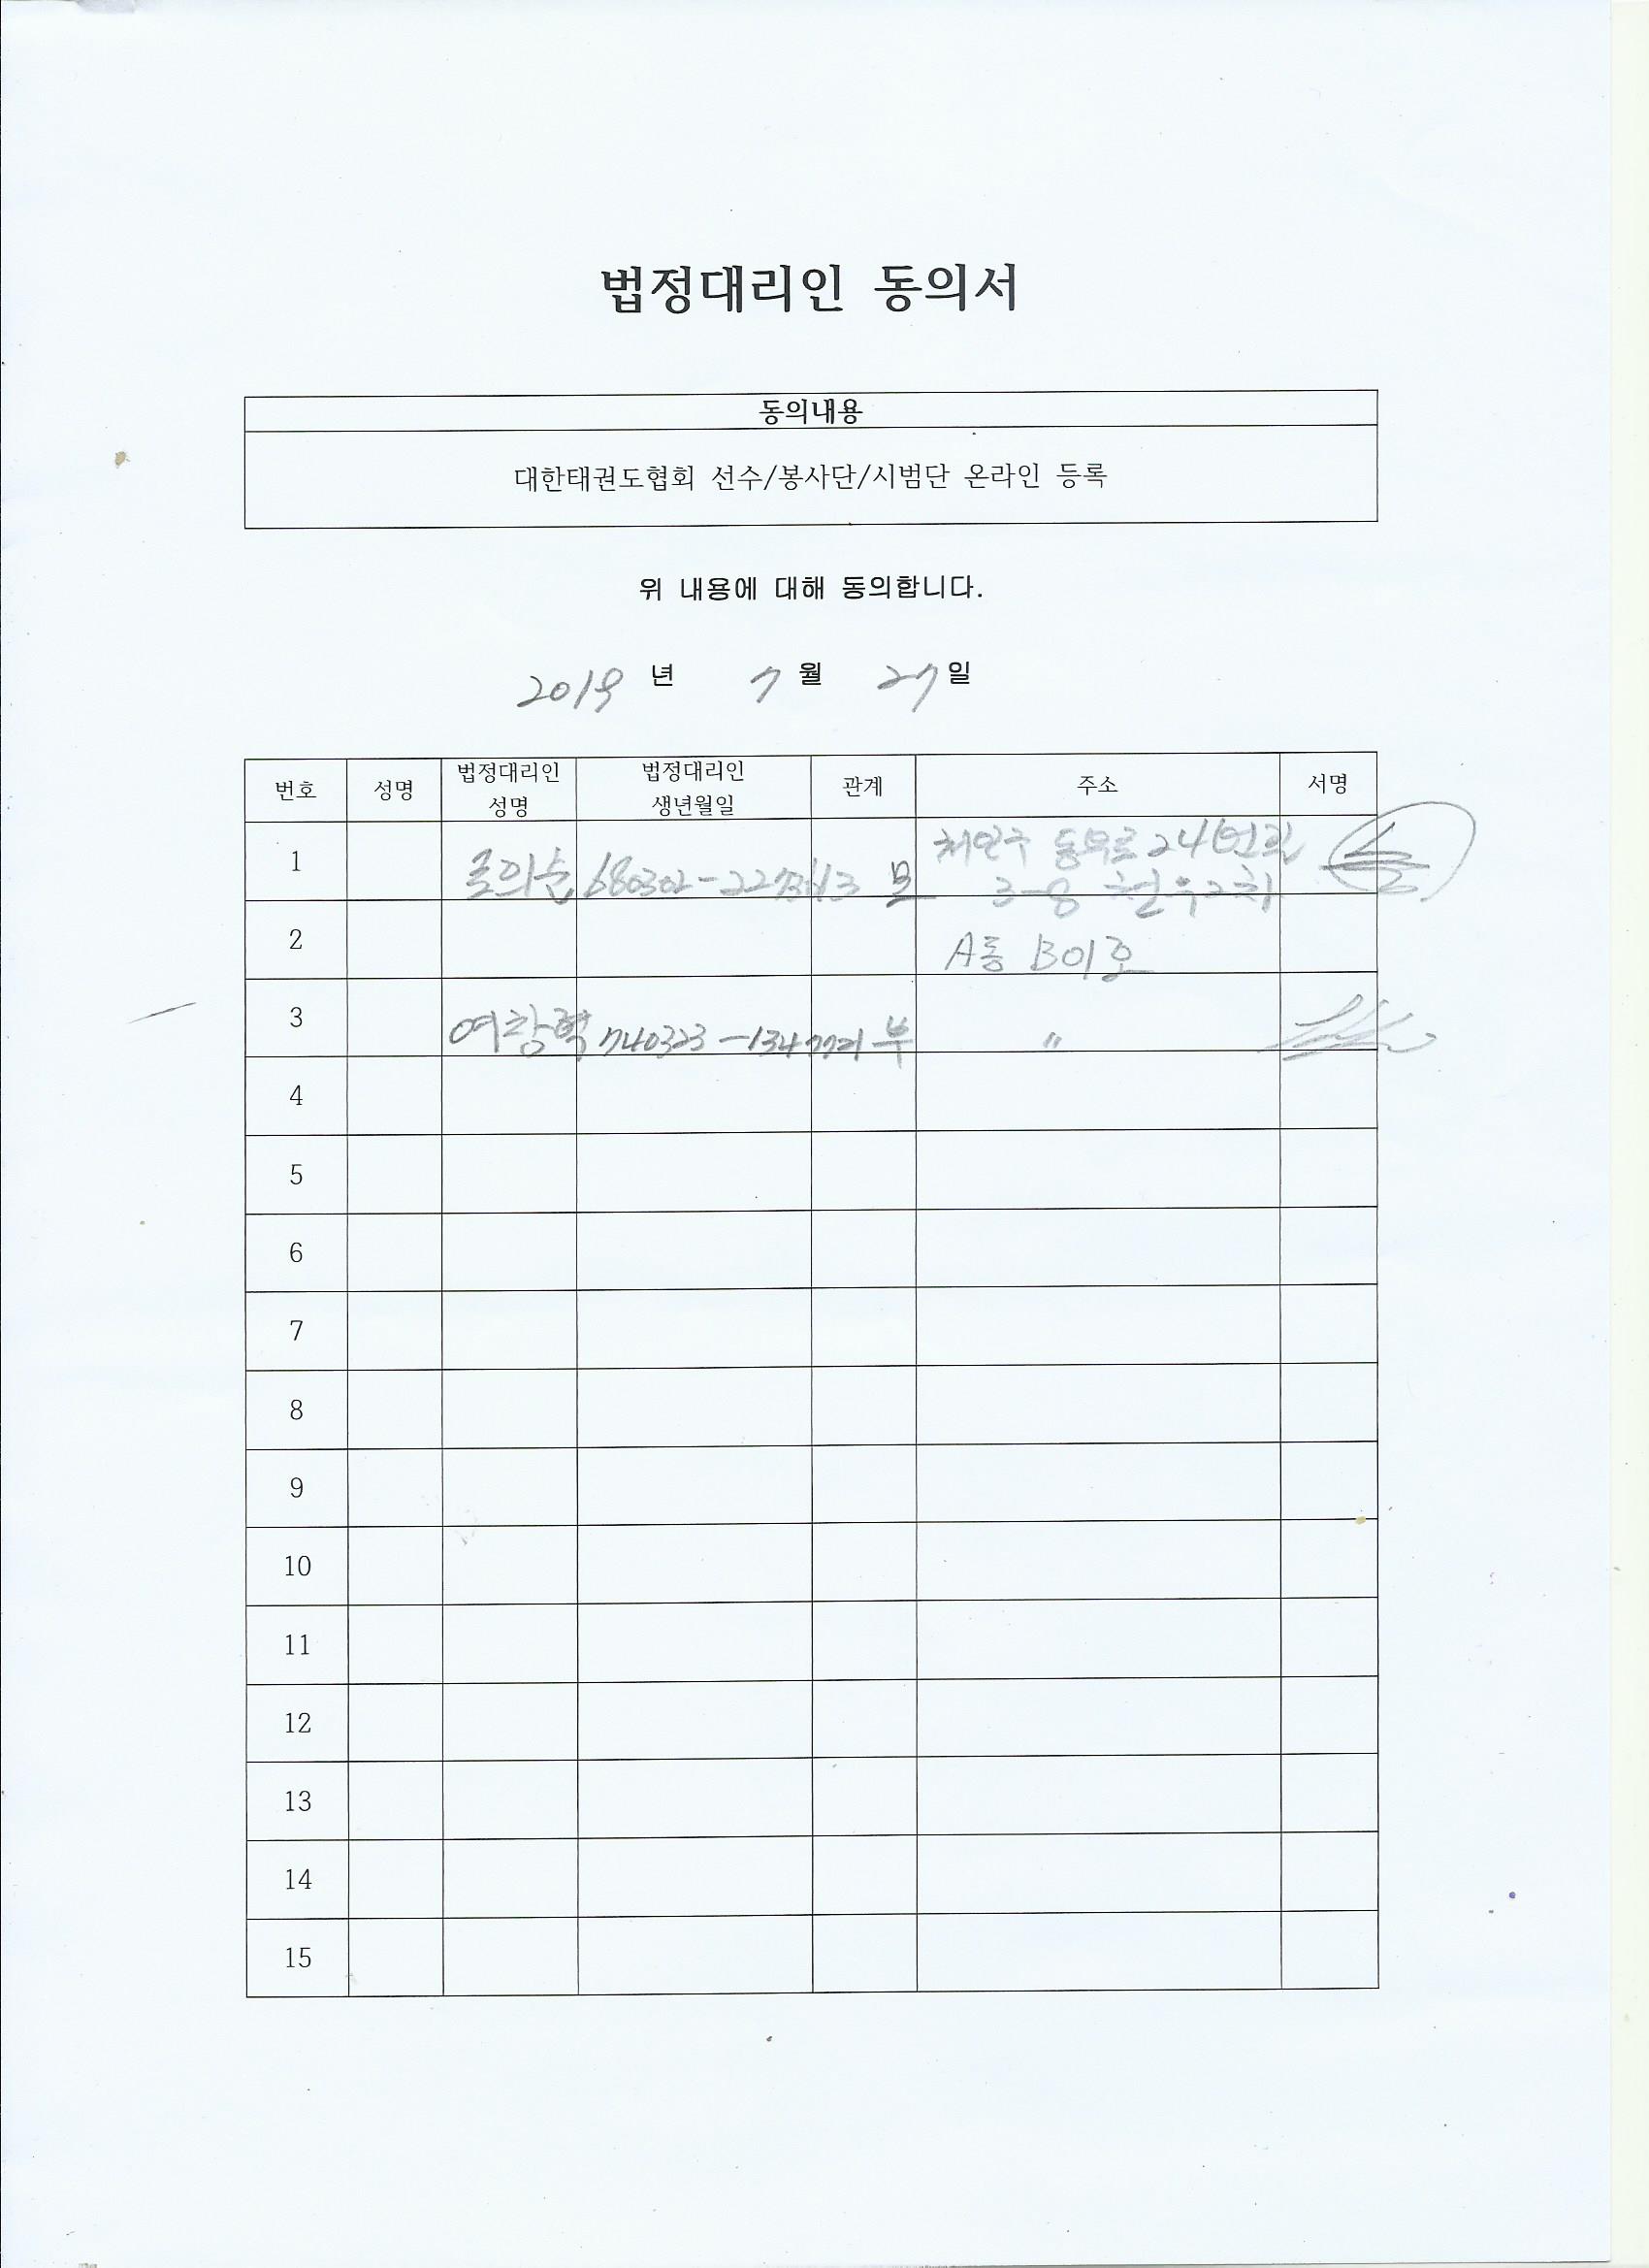 법정대리인 동의서
동의내용
대한태권도협회 선수/봉사단/시범단 온라인 등록
위 내용에 대해 동의합니다.
2019 년 7 월 27 일
번호 성명 법정대리인 성명 법정대리인 생년월일 관계 주소 서명
1 모 24번길
3-8
2 A동 B01호
3 여창혁 740323-1347721 부 〃
4
5
6
7
8
9
10
11
12
13
14
15